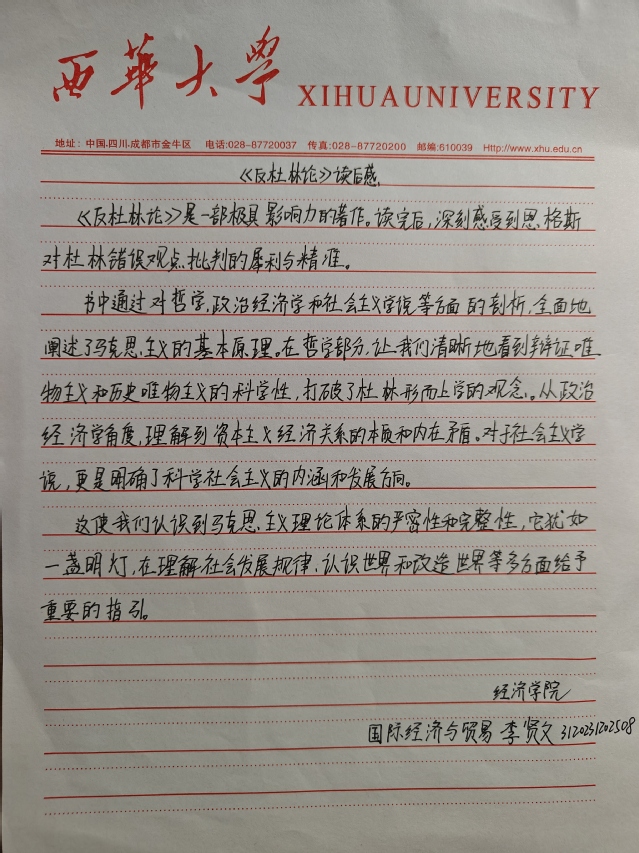 西華大學 XIHUAUNIVERSITY
地址：中国.四川.成都市金牛区 电话:028-87720037 传真:028-87720200 邮编:610039 Http://www.xhu.edu.cn
《反杜林论》读后感
《反杜林论》是一部极具影响力的著作。读完后,深刻感受到恩格斯
对杜林错误观点批判的犀利与精准。
书中通过对哲学,政治经济学和社会主义学说等方面的剖析,全面地
阐述了马克思主义的基本原理。在哲学部分,让我们清晰地看到辩证唯
物主义和历史唯物主义的科学性,打破了杜林形而上学的观念。从政治
经济学角度,理解到资本主义经济关系的本质和内在矛盾。对于社会主义学
说,更是明确了科学社会主义的内涵和发展方向。
这使我们认识到马克思主义理论体系的严密性和完整性,它犹如
一盏明灯,在理解社会发展规律、认识世界和改造世界等多方面给予
重要的指引。
经济学院
国际经济与贸易 李贤文 3120231202508